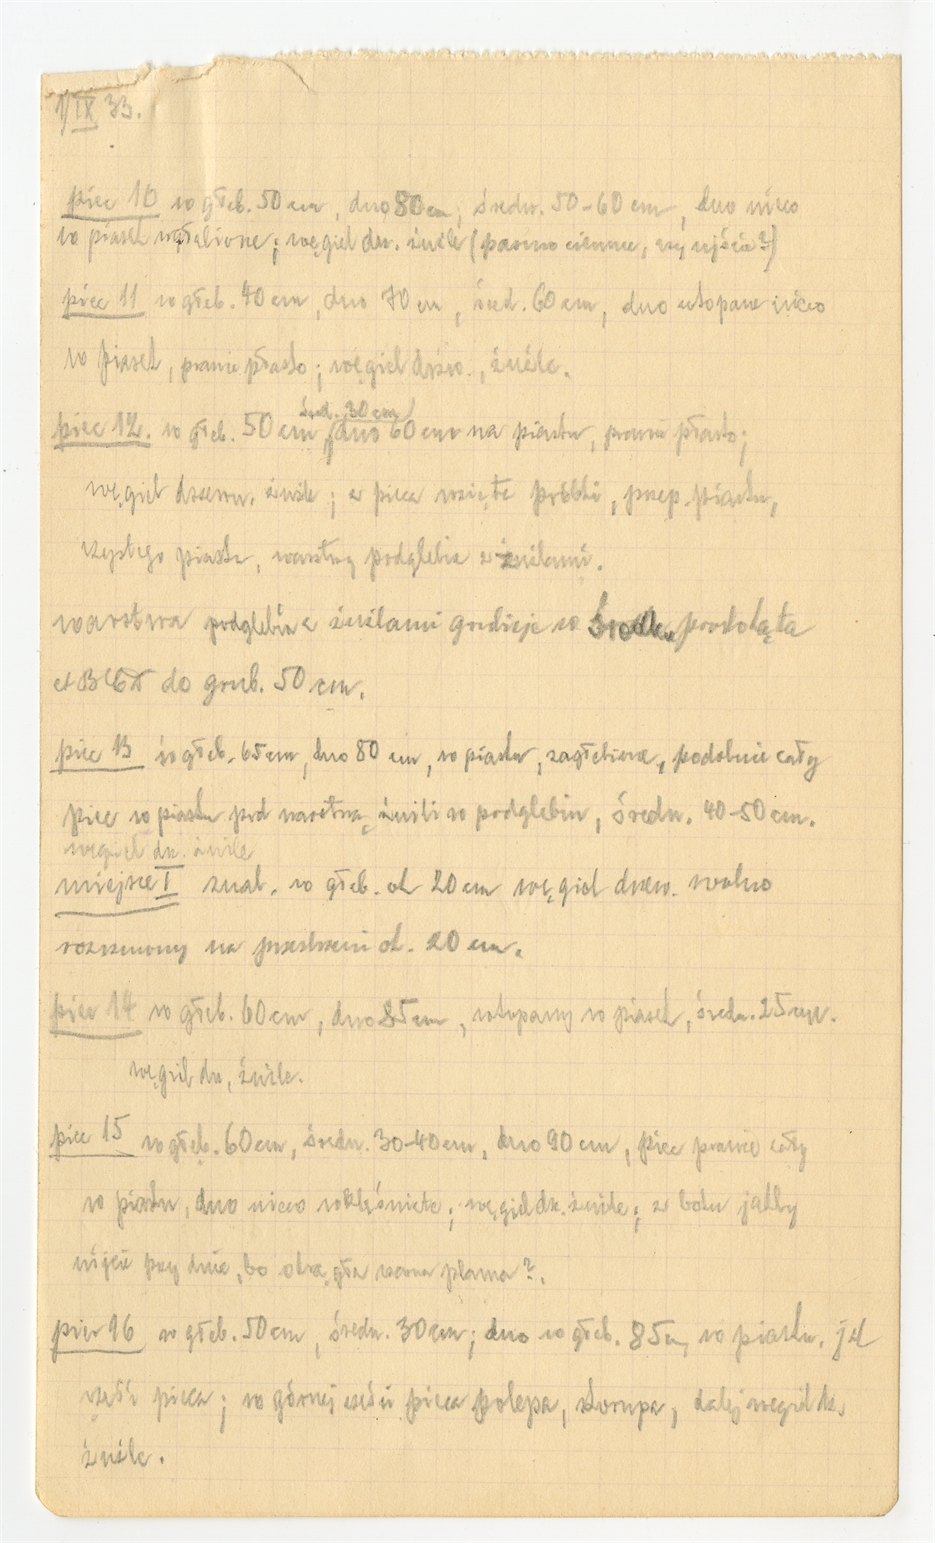 1/IX 33.
piec 10 w głęb. 50 cm, dno 80 cm; średn. 50-60 cm, dno nieco
w piasek wgłębione; węgiel drz. żużle (pasmo ciemne, czy ujście?)
piec 11 w głęb. 40 cm, dno 70 cm, śred. 60 cm, dno wkopane nieco
w piasek, prawie płasko; węgiel drzew., żużle.
śred. 30 cm
piec 12. w głęb. 50 cm, dno 60 cm na piasku, prawie płasko;
węgiel drzewn. żużle; z pieca wzięte próbki, przep. piasku,
czystego piasku, warstwy podglebia z żużlami.
warstwa podglebia z żużlami grubieje w środku prostokąta
do grub. 50 cm.
piec 13 w głęb. 65 cm, dno 80 cm, w piasku, zagłębione, podobnie cały
piec w piasku pod warstwą żużli w podglebiu, średn. 40-50 cm.
węgiel drz. żużle
miejsce I znal. w głęb. ok 20 cm węgiel drzew. wolno
rozrzucony na przestrzeni ok. 20 cm.
piec 14 w głęb. 60 cm, dno 85 cm, wkopany w piasek, średn. 25 cm.
węgiel drz, żużle.
piec 15 w głęb. 60 cm, średn. 30-40 cm, dno 90 cm, piec prawie cały
w piasku, dno nieco wklęśnięte; węgiel drz. żużle; z boku jakby
ujście przy dnie, bo okrągła czarna plama?.
piec 16 w głęb. 50 cm, średn. 30 cm; dno w głęb. 85 cm w piasku, jak
część pieca; w górnej części pieca polepa, skorupa, dalej węgiel drz.
żużle.